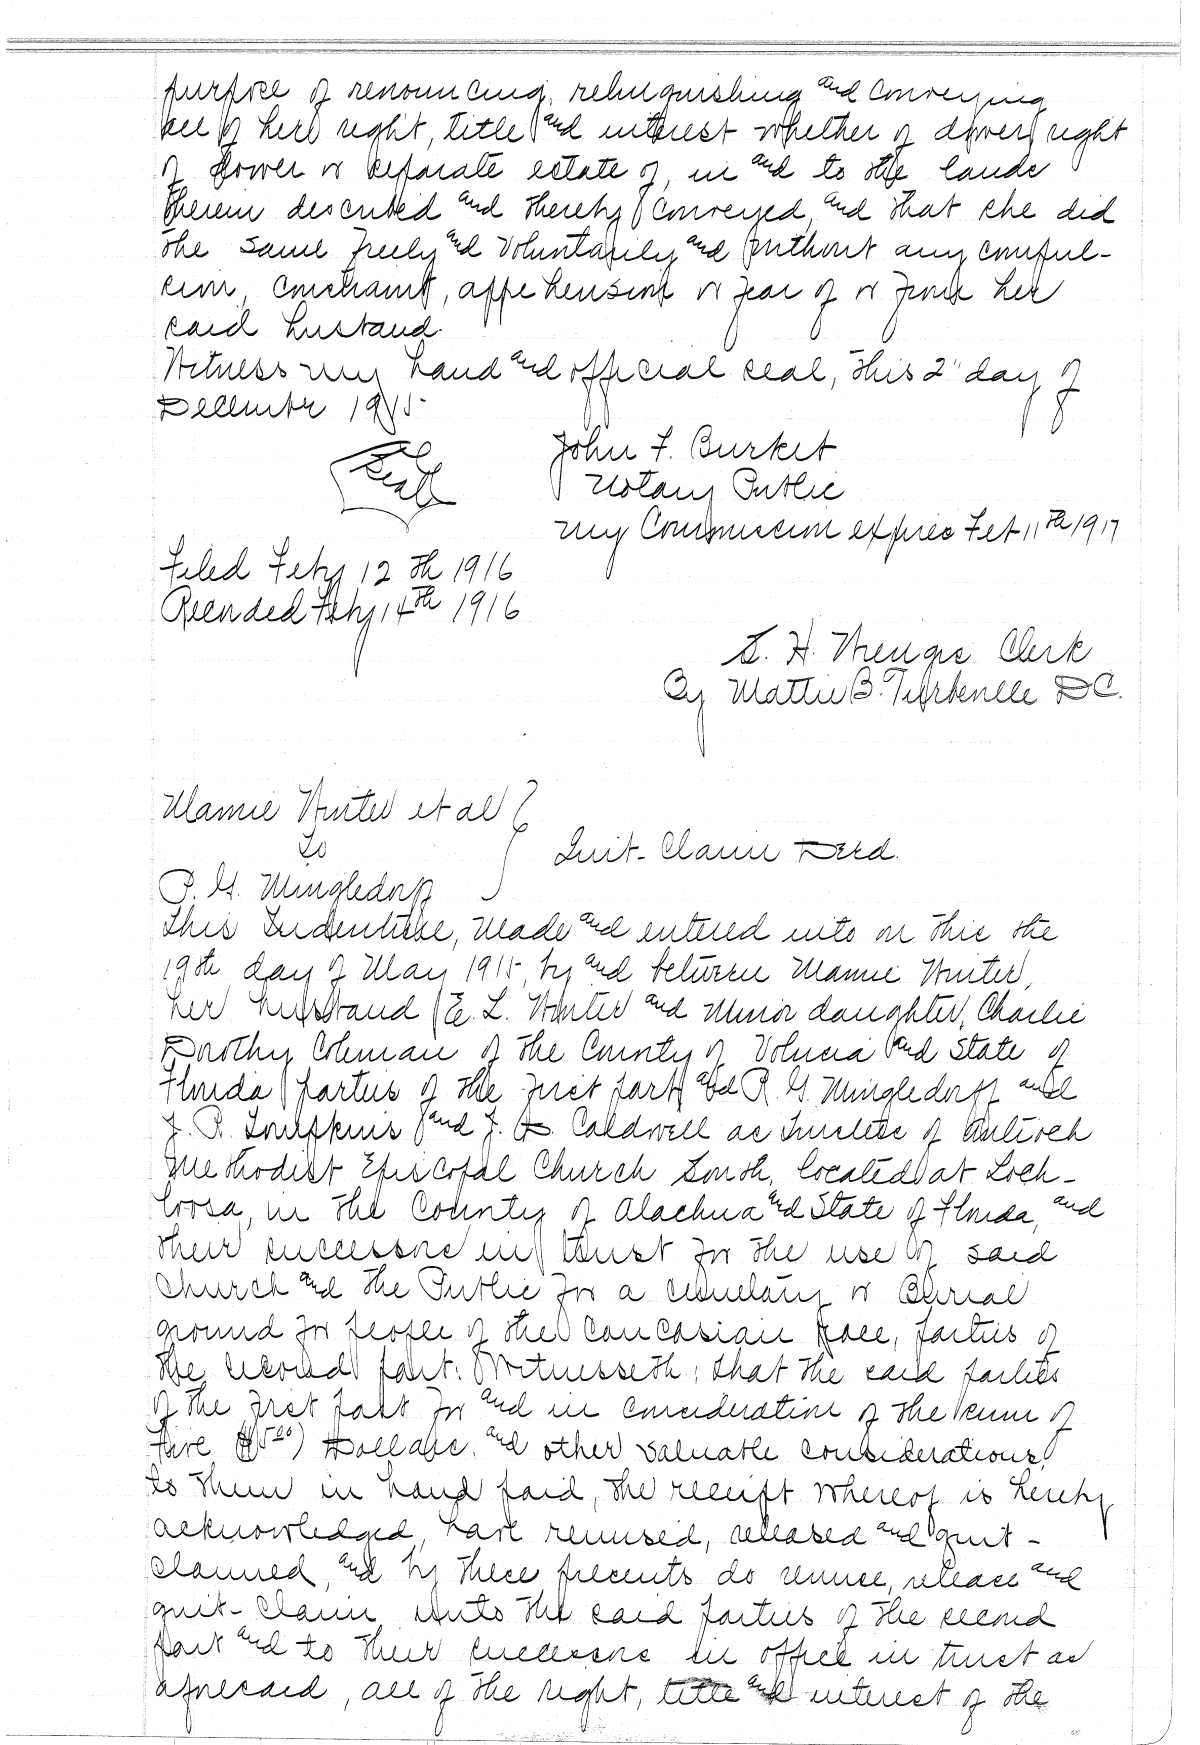 purpose of renouncing, relinquishing and conveying
all of her right, title and interest whether of dower, right
of dower or separate estate of, in and to the lands
therein described and thereby conveyed, and that she did
the same freely and voluntarily and without any compul-
sion, constraint, apprehension or fear of or from her
said husband.
Witness my hand and official seal, this 2" day of
December 1915
Seal
John F. Burket
Notary Public
My Commission expires Feb 11th 1917
Filed Feby 12th 1916
Recorded Feby 14th 1916
S. H. Wienges Clerk
By Mattie B. D.C.
Mamie Winter et al
to
Quit-Claim Deed.
P. G. Mingledorff
This Indenture, made and entered into on this the
19th day of May 1915, by and between Mamie Winter,
her husband E. L. Winter and minor daughter, Charlie
Dorothy Coleman of the County of Volusia and State of
Florida parties of the first part and P. G. Mingledorff and
J. P. Tompkins and J. Caldwell as Trustees of Antioch
Methodist Episcopal Church South, located at Loch-
loosa, in the County of Alachua and State of Florida, and
their successors in trust for the use of said
Church and the Public for a cemetary or Burial
ground for people of the Caucasian Race, parties of
the second part: Witnesseth; that the said parties
of the first part for and in consideration of the sum of
Five ($5.00) Dollars, and other valuable considerations,
to them in hand paid, the receipt whereof is hereby
acknowledged, have remised, released and quit-
claimed, and by these presents do remise, release and
quit-claim unto the said parties of the second
part and to their successors in office in trust as
aforesaid, all of the right, title and interest of the